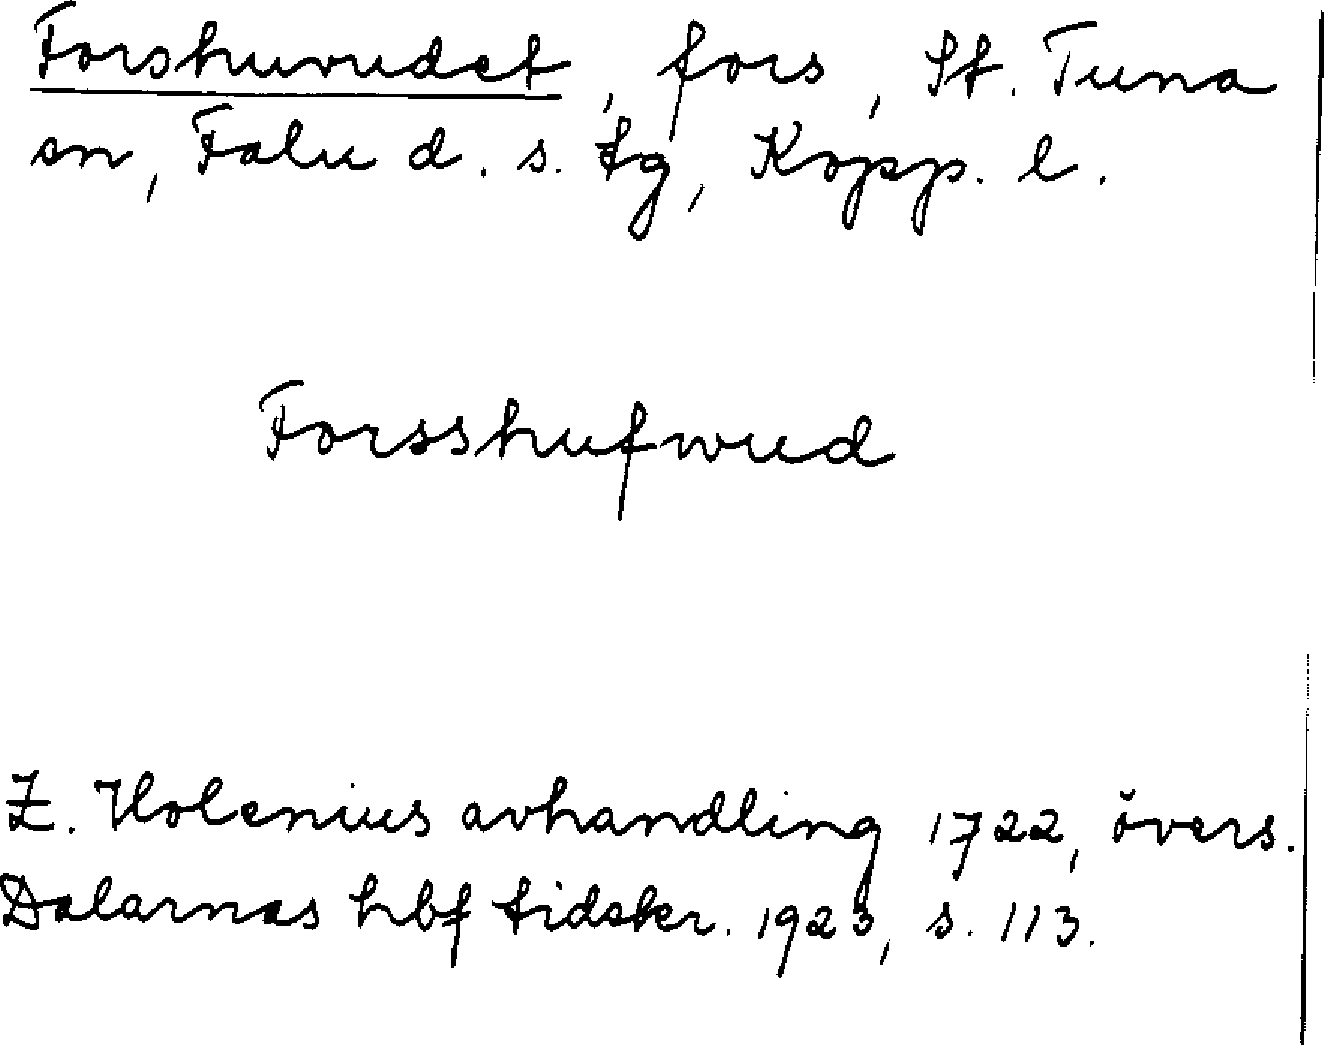 Forshuvudet, fors, St. Tuna
sn, Falu d. s. tg, Kopp. l.
Forsshufwud
Z. Holenius avhandling 1722, övers.
Dalarnas hbf tidskr. 1923, s. 113.